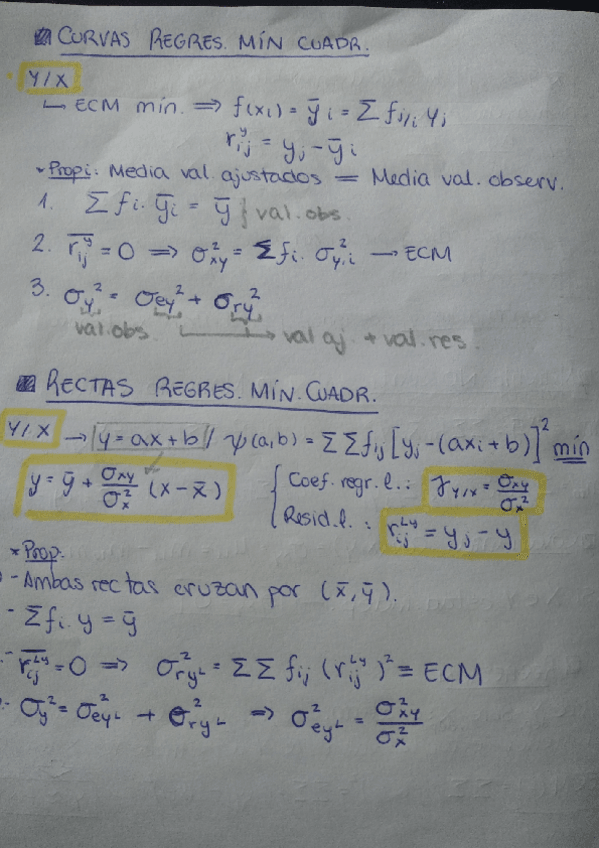 CURVAS REGRES. MÍN CUADR.
Y/X
↳ ECM min. ⟹ f(xi) = ȳi = Σ fj/i yj
rij^y = yj - ȳi
* Propi: Media val. ajustados = Media val. observ.
1. Σ fi. ȳi = ȳ } val. obs.
2. r̄ij^y = 0 ⟹ σ²xy = Σ fi. σ²y,i → ECM
3. σy² = σey² + σry²
val. obs. → val aj. + val. res.
RECTAS REGRES. MÍN. CUADR.
Y/X → y = ax + b / ψ(a,b) = ΣΣ fij [yj - (axi + b)]² mín
y = ȳ + σxy/σx² (x - x̄)
Coef. regr. l.: γy/x = σxy/σx²
Resid. l.: rij^Ly = yj - y
* Prop.
- Ambas rectas cruzan por (x̄, ȳ).
- Σ fi. y = ȳ
- r̄ij^Ly = 0 ⟹ σ²ryL = ΣΣ fij (rij^Ly)² = ECM
- σy² = σ²eyL + σ²ryL ⟹ σ²eyL = σ²xy/σ²x